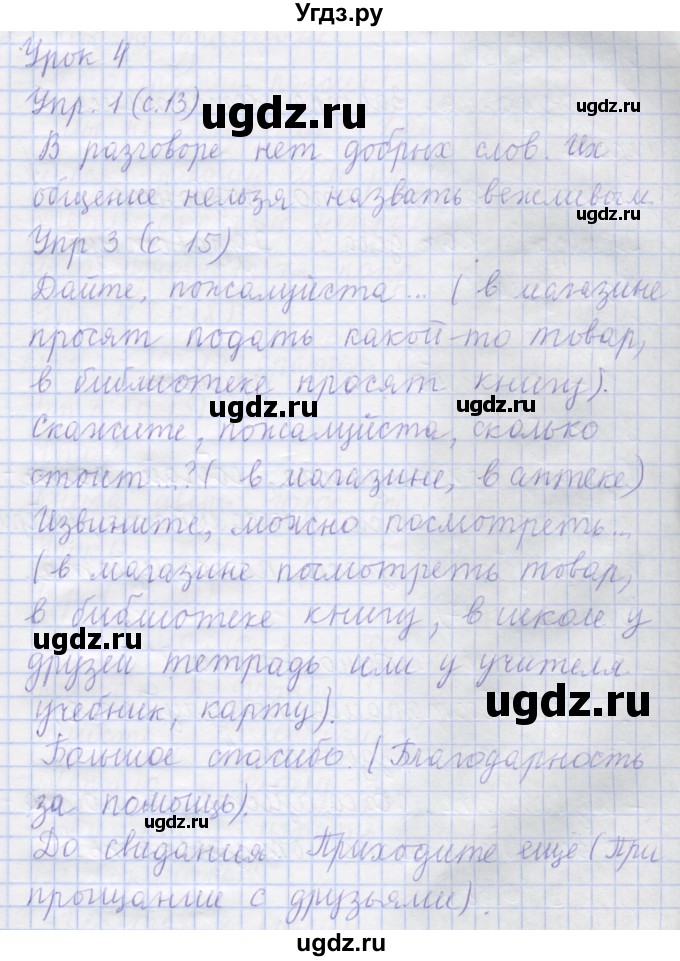 Угдз.ру
Урок 4
Упр. 1 (с.13)
ugdz.ru
ugdz.ru
В разговоре нет добрых слов. Их
общение нельзя назвать вежливым.
ugdz.ru
Упр 3 (с 15)
Дайте, пожалуйста... ( в магазине
просят подать какой-то товар,
в библиотеке просят книгу).
ugdz.ru
ugdz.ru
Скажите, пожалуйста, сколько
стоит...? ( в магазине, в аптеке)
Извините, можно посмотреть...
( в магазине посмотреть товар,
в библиотеке книгу, в школе у
ugdz.ru
друзей тетрадь или у учителя
ugdz.ru
учебник, карту).
Большое спасибо. (Благодарность
за помощь).
ugdz.ru
До свидания Приходите ещё (При
прощании с друзьями).
ugdz.ru